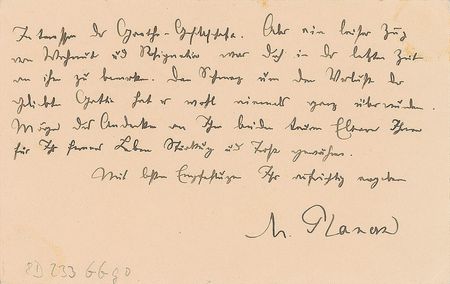 Interessen der Goethe-Gesellschaft. Aber ein leiser Zug
von Wehmut und Resignation war doch in der letzten Zeit
an ihm zu bemerken. Den Schmerz um den Verlust der
geliebten Gattin hat er wohl niemals ganz überwunden.
Möge das Andenken an Ihre beiden teuren Eltern Ihnen
für Ihr ferneres Leben Stärkung und Trost gewähren.
Mit besten Empfehlungen Ihr aufrichtig ergebener
M. Planck